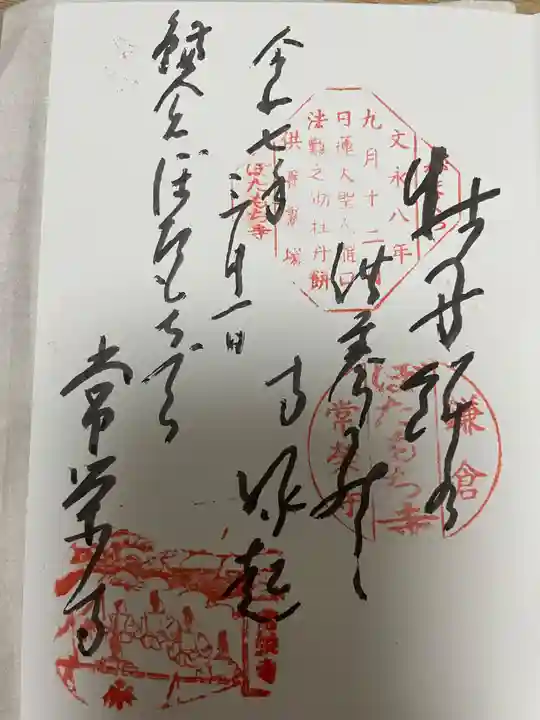 牡丹餅の
供養
寺縁起
令和七年三月一日
鎌倉ぼたもち寺
常栄寺
文永八年
九月十二日
日蓮大聖人龍口
法難之砌牡丹餅
供養霊場
ぼたもち寺
鎌倉
ぼたもち寺
常栄寺